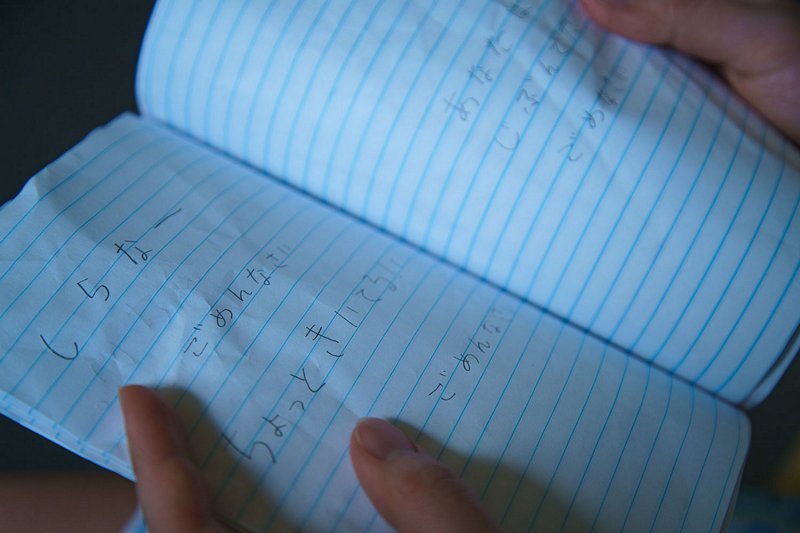 あなた
じぶんで
ごめんな
しらなー
ごめんなさ
ちょっときいてる
ごめんな